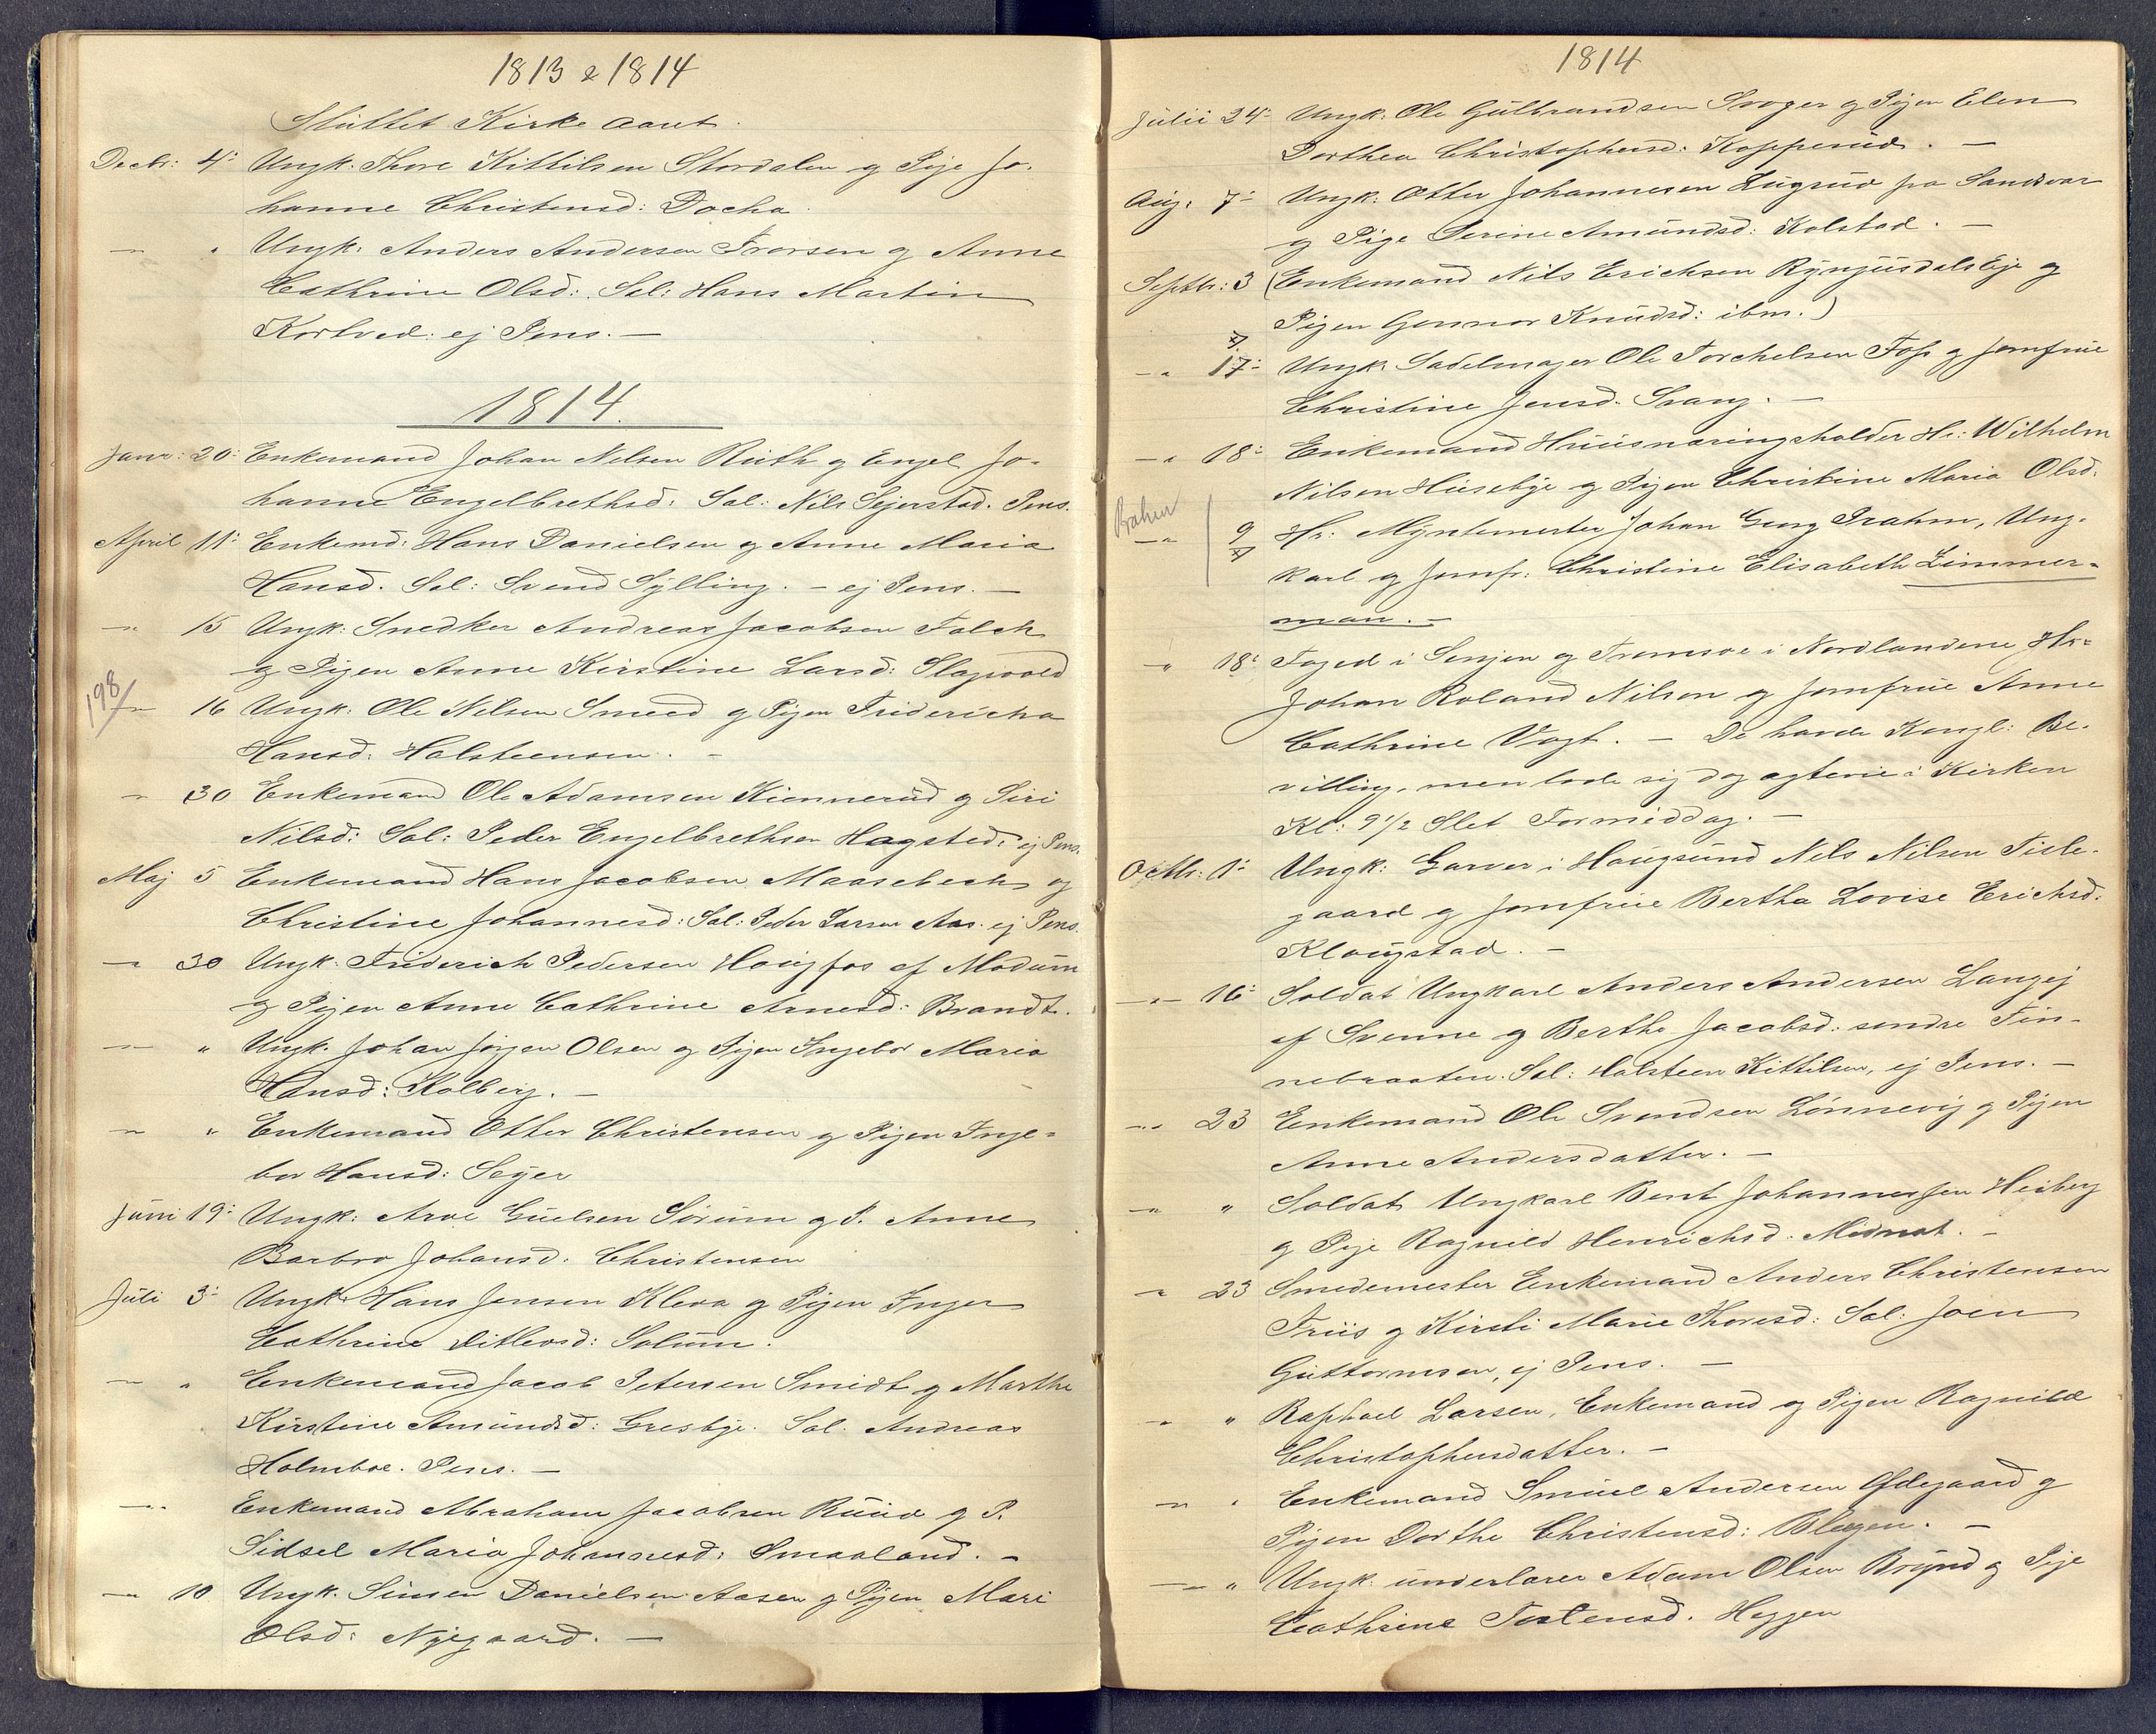 1813 & 1814
Sluttet Kirke aaret.
Decbr: 4: Ungk. Thore Kittilsen Stordalen og Pige Jo-
hanne Christensd: Docka
— " Ungk: Anders Andersen Trorsen og Anne
Cathrine Olsd: Sal: Hans Martin
Kortved. ej Pens. —
1814.
Janr: 20: Enkemand Johan Nilsen Ruth og Engel Jo-
hanne Engelbrethsd: Sal: Nils Sejerstad. Pens.
April 11: Enkemd: Hans Danielsen og Anne Maria
Hansd. Sal: Svend Sylling. - ej Pens. —
— 15 Ungk: Snedker Andreas Jacobsen Falch
og Pigen Anne Kirstine Larsd: Slagvold
198/
— 16 Ungk. Ole Nilsen Smeed og Pigen Fridericha
Hansd: Halsteensen. -
— 30 Enkemand Ole Adamsen Kiennerud og Siri
Nilsd: Sal: Peder Engelbrethsen Hagsted. ej Pens.
Maj 5 Enkemand Hans Jacobsen Maasebech og
Christine Johannesd: Sal: Peder Larsen Aas. ej Pens.
— 30 Ungk. Friderich Pedersen Hougfos af Modum
og Pigen Anne Cathrine Arnesd: Brandt.
— " Ungk. Johan Jörgen Olsen og Pigen Ingebor Maria
Hansd: Kolberg. —
— " Enkemand Otter Christensen og Pigen Inge-
bor Hansd: Seyer
Juni 19: Ungk: Arve Guelsen Sörum og P. Anne
Barbro Johansd. Christensen
Juli 3: Ungk. Hans Jensen Kleva og Pigen Inger
Cathrine Ditlevsd: Solum.
— " Enkemand Jacob Petersen Smidt og Marthe
Kirstine Amundsd: Gresbye. Sal. Andreas
Holmboe. Pens. —
— " Enkemand Abraham Jacobsen Ruud og P.
Sidsel Maria Johannesd: Smaaland. -
— 10 Ungk. Simen Danielsen Aasen og Pigen Mari
Olsd: Nyegaard. —
1814
Julii 24: Ungk: Ole Gulbrandsen Svager og Pigen Elen
Dorthea Christophersd: Kopperud. —
Aug: 7: Ungk. Otter Johannesen Lugrud fra Sandsvær
og Pige Serine Amundsd: Kolstad. —
Septbr: 3 (Enkemand Nils Erichsen Ryngusdalsleje og
Pigen Gonnor Knudsd: ibm.)
— 17: Ungk: Sadelmager Ole Torchelsen Fos og Jomfrue
Christine Jensd. Svang. —
— 18: Enkemand Huusnæringsholder Hr: Wilhelm
Nilsen Husebye og Pigen Christine Maria Olsd.
— 9 Hr: Myntemester Johan Georg Prahm, Ung-
karl og Jomfr: Christine Elisabeth Zimmer-
man. —
— 18: Foged i Senjen og Tromsøe i Nordlandene Hr:
Johan Roland Nilson og Jomfrue Anne
Cathrine Vogt. — De havde Kongl: Be-
villing, men lode sig dog ægtevie i Kirken
Kl: 9 1/2 Slet Formiddag. —
Octbr: 1: Ungk: Garver i Hougsund Nels Nilsen Tisle-
gaard og Jomfrue Bertha Lovise Erichsd.
Klougstad. —
— 16: Soldat Ungkarl Anders Andersen Langej
af Svenne og Berthe Jacobsd: søndre Fin-
nebraaten. Sal: Halsteen Kittilsen, ej Pens. —
— 23 Enkemand Ole Svendsen Lönnevig og Pigen
Anne Andersdatter. —
— " Soldat Ungkarl Bent Johannessen Heiberg
og Pige Ragnild Henrichsd. Midnat. —
— 23 Smedemester Enkemand Anders Christensen
Friis og Kirsti Marie Thoresd: Sal: Joen
Guttormsen, ej Pens. —
— " Raphael Larsen, Enkemand og Pigen Ragnild
Christophersdatter. —
— " Enkemand Smuel Andersen Ødegaard og
Pigen Dorthe Christensd: Blegen. —
— " Ungk. underlærer Adam Olsen Brynd og Pige
Cathrine Tostensd. Heggen